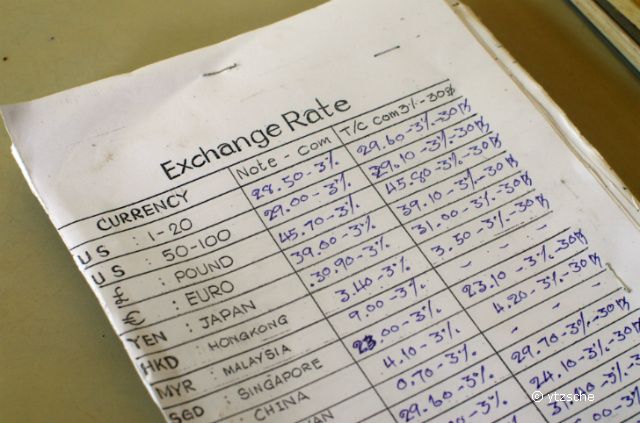 Exchange Rate
CURRENCY Note - Com T/C com 3% - 30฿
US : 1-20 28.50-3% 29.60-3%-30฿
US : 50-100 29.00-3% 29.10-3%-30฿
£ : POUND 45.70-3% 45.80-3%-30฿
€ : EURO 39.00-3% 39.10-3%-30฿
YEN : JAPAN 30.90-3% 31.00-3%-30฿
HKD : HONGKONG 3.40-3% 3.50-3%-30฿
MYR : MALAYSIA 9.00-3% - - -
SGD : SINGAPORE 23.00-3% 23.10-3%-30฿
: CHINA 4.10-3% 4.20-3%-30฿
0.70-3% - - -
29.60-3% 29.70-3%-30฿
-3% 24.10-3%-30฿
-3%-30฿
© ytzsche